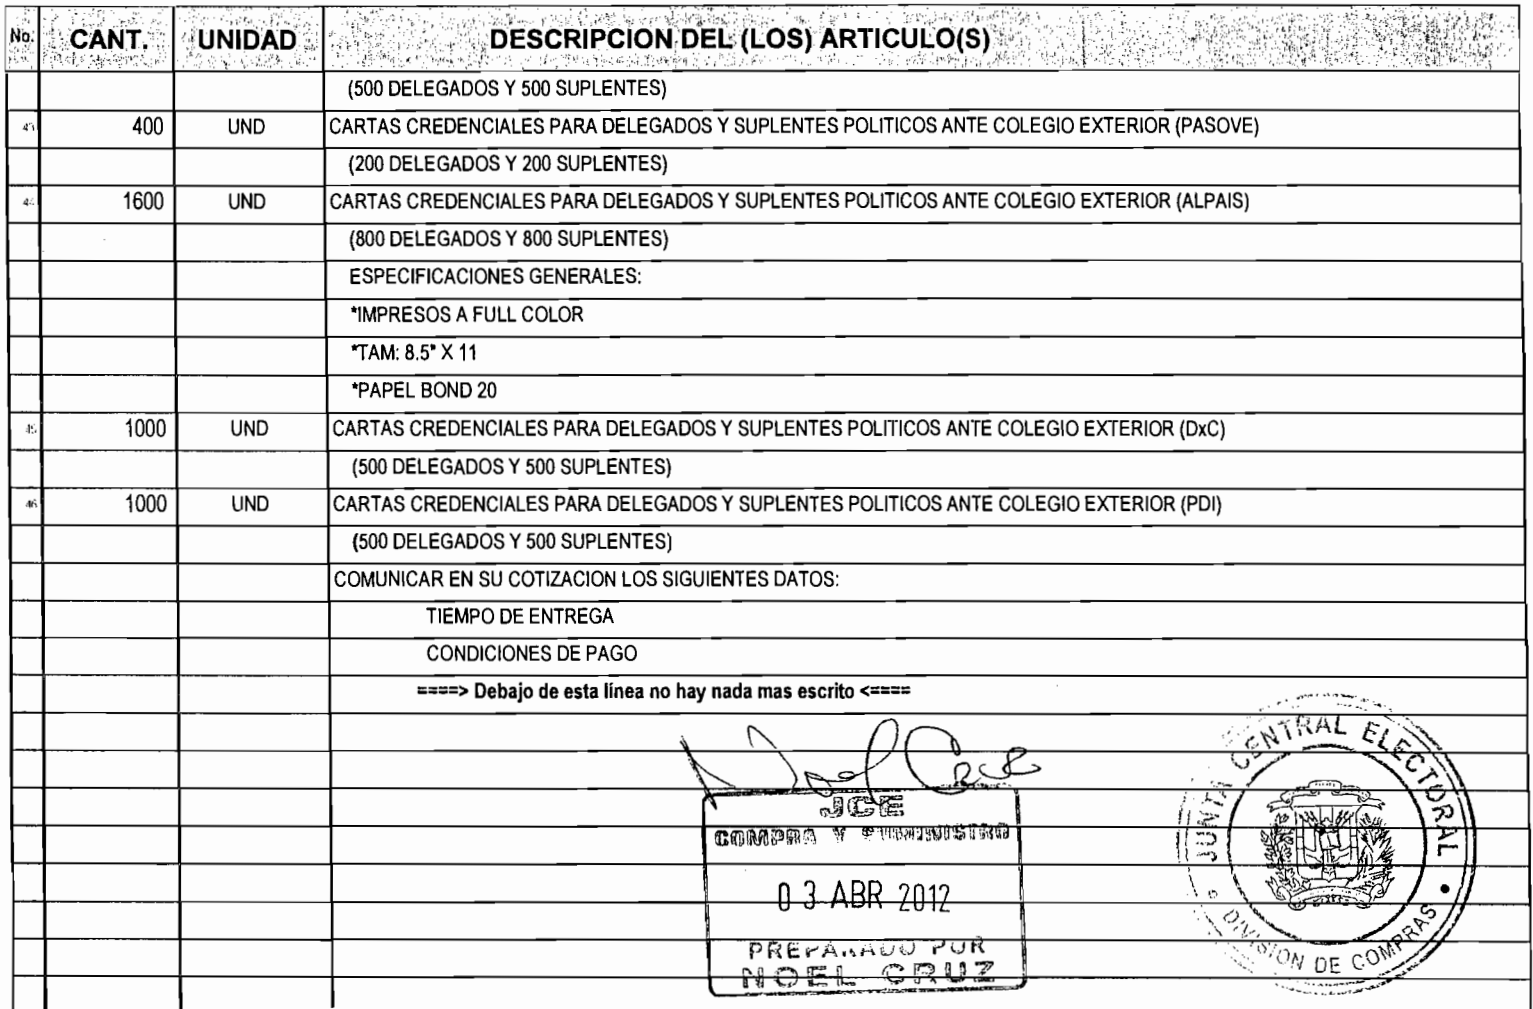 No. CANT. UNIDAD DESCRIPCION DEL (LOS) ARTICULO(S)
(500 DELEGADOS Y 500 SUPLENTES)
43 400 UND CARTAS CREDENCIALES PARA DELEGADOS Y SUPLENTES POLITICOS ANTE COLEGIO EXTERIOR (PASOVE)
(200 DELEGADOS Y 200 SUPLENTES)
44 1600 UND CARTAS CREDENCIALES PARA DELEGADOS Y SUPLENTES POLITICOS ANTE COLEGIO EXTERIOR (ALPAIS)
(800 DELEGADOS Y 800 SUPLENTES)
ESPECIFICACIONES GENERALES:
*IMPRESOS A FULL COLOR
*TAM: 8.5" X 11
*PAPEL BOND 20
45 1000 UND CARTAS CREDENCIALES PARA DELEGADOS Y SUPLENTES POLITICOS ANTE COLEGIO EXTERIOR (DxC)
(500 DELEGADOS Y 500 SUPLENTES)
46 1000 UND CARTAS CREDENCIALES PARA DELEGADOS Y SUPLENTES POLITICOS ANTE COLEGIO EXTERIOR (PDI)
(500 DELEGADOS Y 500 SUPLENTES)
COMUNICAR EN SU COTIZACION LOS SIGUIENTES DATOS:
TIEMPO DE ENTREGA
CONDICIONES DE PAGO
====> Debajo de esta línea no hay nada mas escrito <====
Noel Cruz
JCE
COMPRA Y SUMINISTRO
03 ABR 2012
PREPARADO POR
NOEL CRUZ
JUNTA CENTRAL ELECTORAL
DIVISION DE COMPRAS